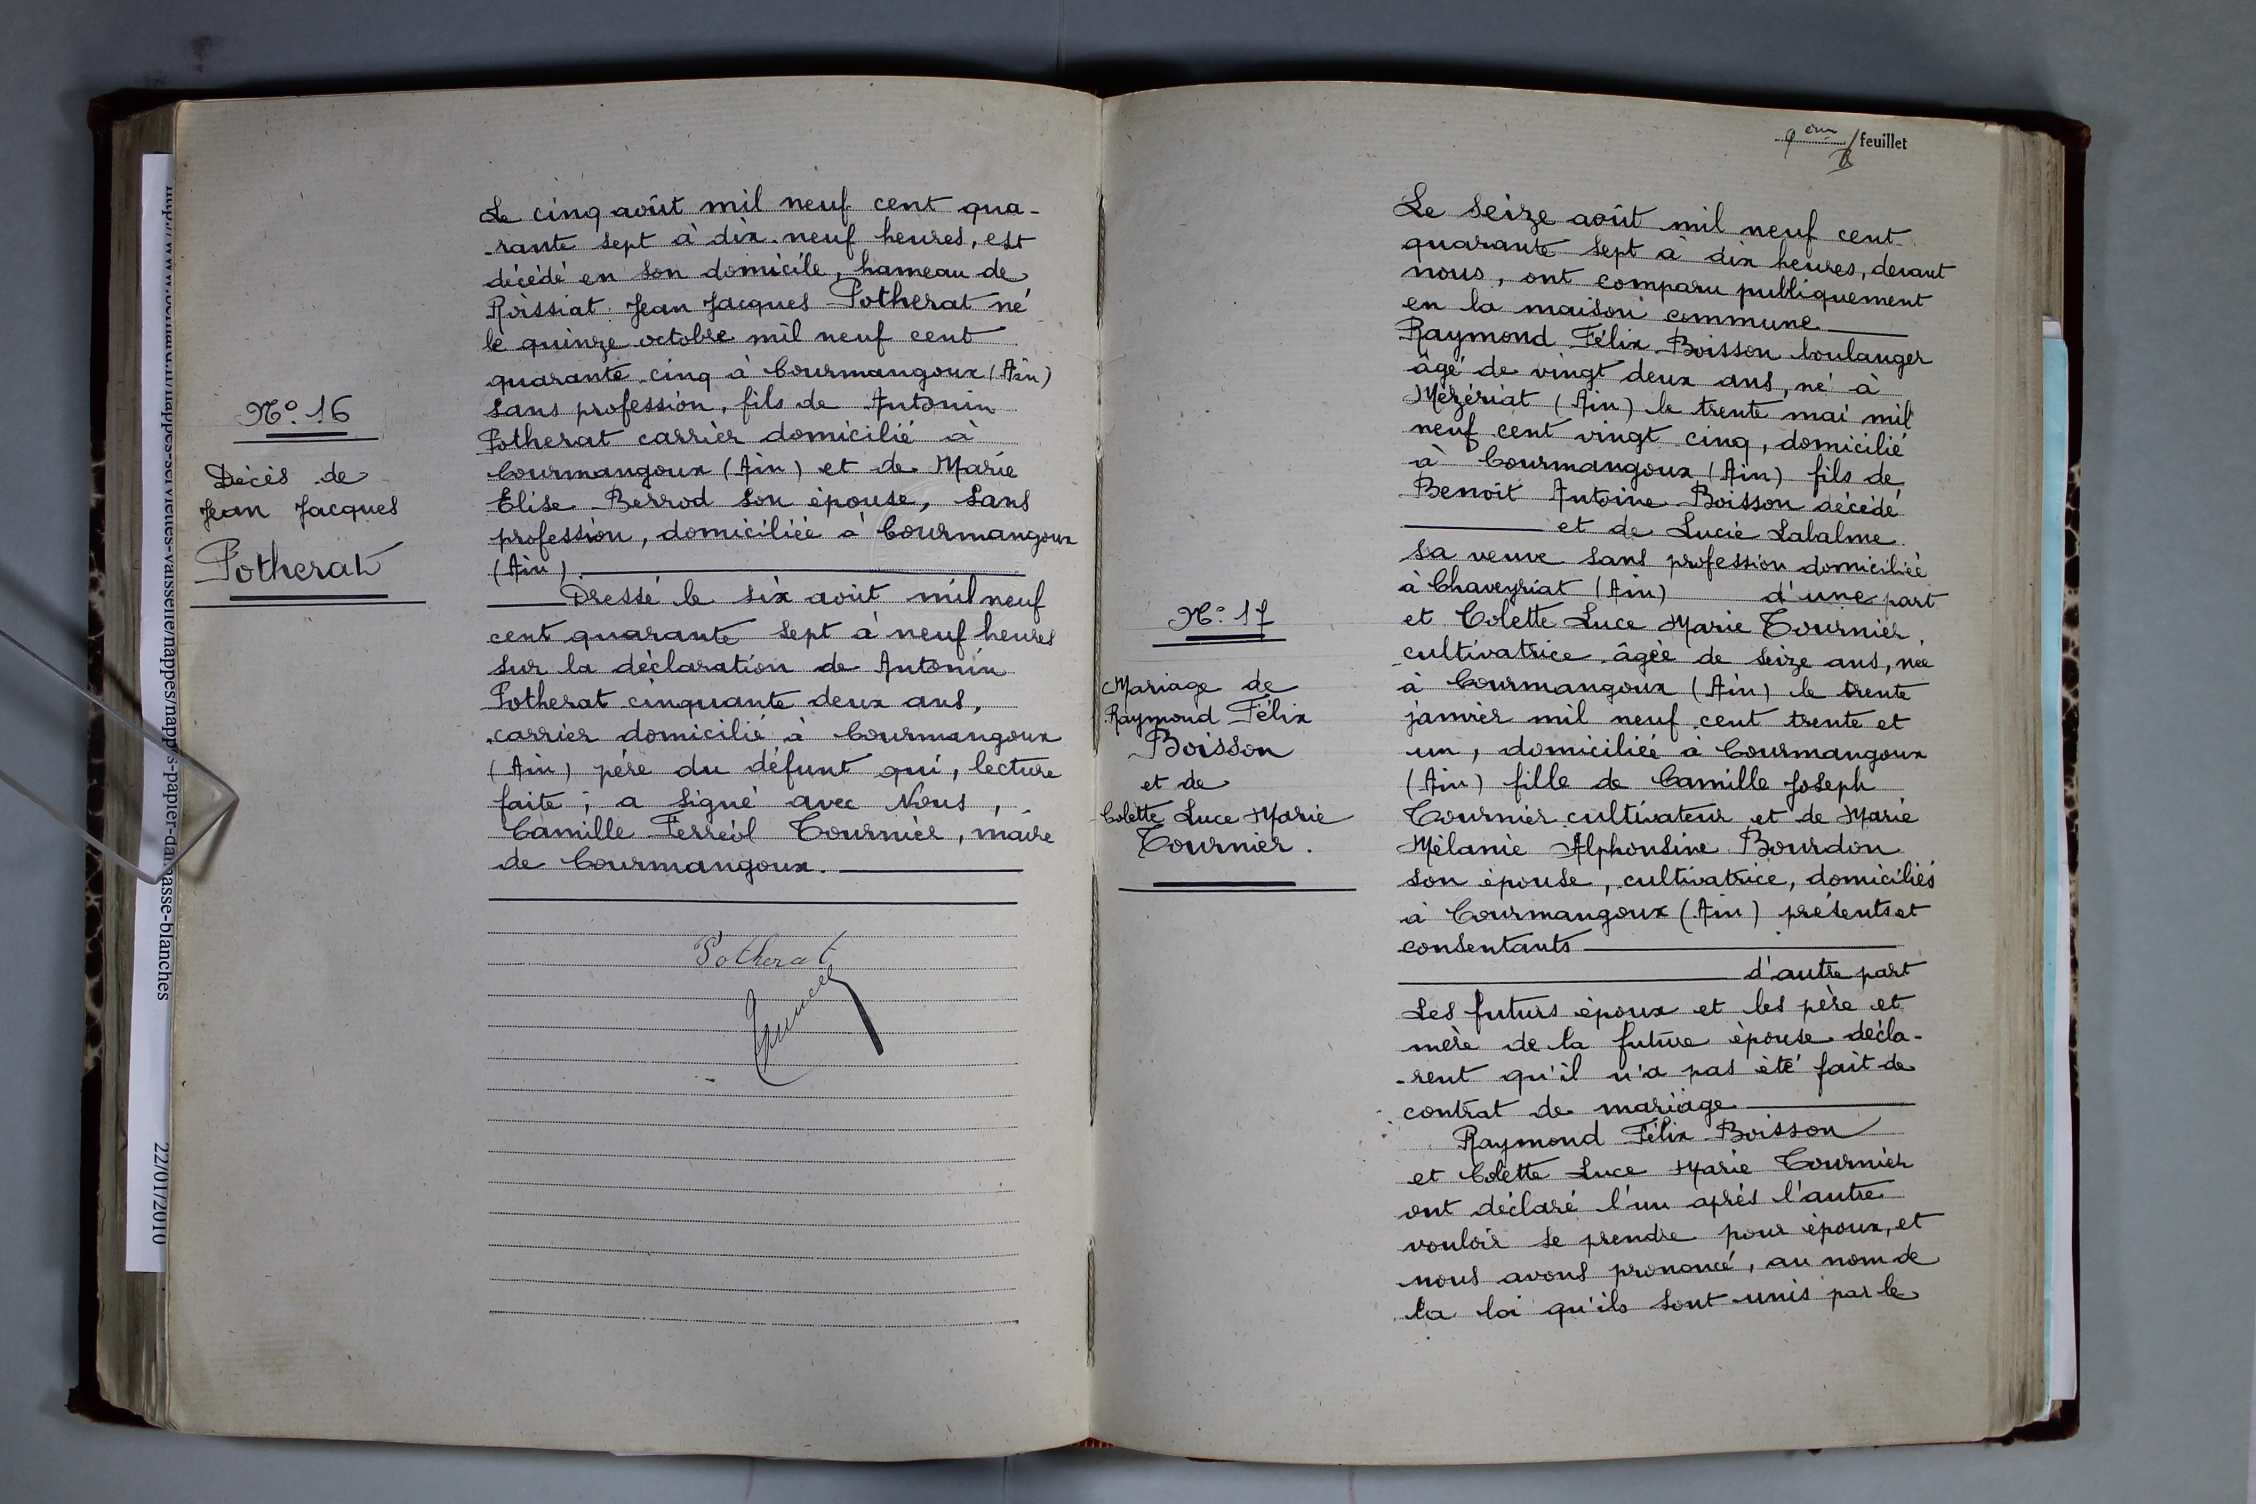 N° 16
Décès de
Jean Jacques
Potherat
Le cinq août mil neuf cent qua-
-rante sept à dix-neuf heures, est
décédé en son domicile, hameau de
Roissiat Jean Jacques Potherat né
le quinze octobre mil neuf cent
quarante cinq à Courmangoux (Ain)
sans profession, fils de Antonin
Potherat carrier domicilié à
Courmangoux (Ain) et de Marie
Elise Berrod son épouse, sans
profession, domiciliée à Courmangoux
(Ain)
Dressé le six août mil neuf
cent quarante sept à neuf heures
sur la déclaration de Antonin
Potherat cinquante deux ans,
carrier domicilié à Courmangoux
(Ain) père du défunt qui, lecture
faite, a signé avec Nous,
Camille Ferréol Tournier, maire
de Courmangoux.
Potherat
Tournier
nappes-papier-damasse-blanches
22/01/2010
9ème feuillet
N° 17
Mariage de
Raymond Félix
Boisson
et de
Colette Luce Marie
Tournier.
Le seize août mil neuf cent
quarante sept à dix heures, devant
nous, ont comparu publiquement
en la maison commune
Raymond Félix Boisson boulanger
âgé de vingt deux ans, né à
Mézériat (Ain) le trente mai mil
neuf cent vingt cinq, domicilié
à Courmangoux (Ain) fils de
Benoît Antoine Boisson décédé
et de Lucie Labalme
sa veuve sans profession domiciliée
à Chaveyriat (Ain) d'une part
et Colette Luce Marie Tournier
cultivatrice âgée de seize ans, née
à Courmangoux (Ain) le trente
janvier mil neuf cent trente et
un, domiciliée à Courmangoux
(Ain) fille de Camille Joseph
Tournier cultivateur et de Marie
Mélanie Alphonsine Bourdon
son épouse, cultivatrice, domiciliés
à Courmangoux (Ain) présents et
consentants
d'autre part
Les futurs époux et les père et
mère de la future épouse décla-
-rent qu'il n'a pas été fait de
contrat de mariage
Raymond Félix Boisson
et Colette Luce Marie Tournier
ont déclaré l'un après l'autre
vouloir se prendre pour époux, et
nous avons prononcé, au nom de
la loi qu'ils sont unis par le